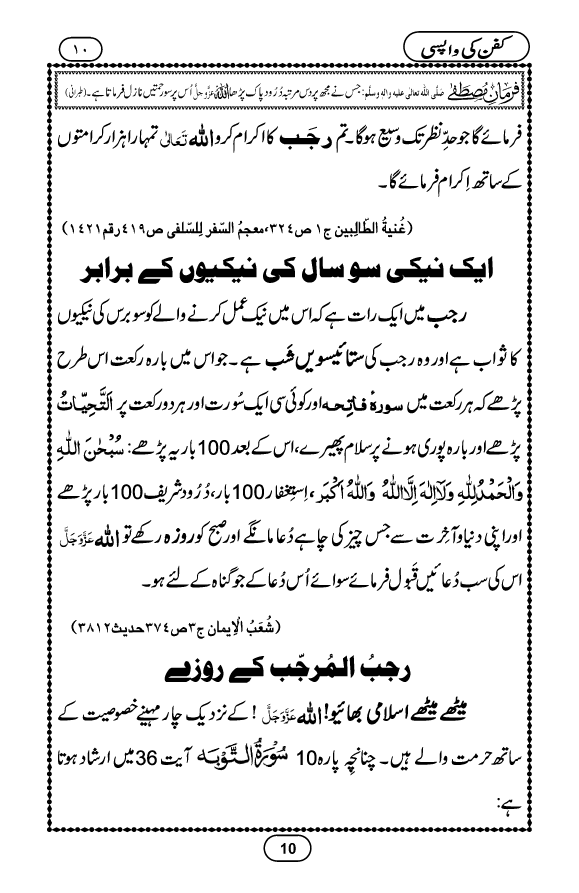 کفن کی واپسی
۱۰
فرمانِ مصطفٰے صلَّی اللہ تعالٰی علیہ والہ وسلَّم: جس نے مجھ پر دس مرتبہ دُرُود پاک پڑھا اللہ عَزَّوَجَلَّ اُس پر سو رحمتیں نازل فرماتا ہے۔ (طبرانی)
فرمائے گا جو حدِّ نظر تک وسیع ہوگا۔ تم رجَب کا اکرام کرو اللہ تَعَالٰی تمہارا ہزار کرامتوں
کے ساتھ اِکرام فرمائے گا۔
(غُنیۃُ الطّالِبین ج۱ ص۳۲٤، معجمُ السّفر لِلسّلفی ص٤۱۹ رقم۱٤۲۱)
ایک نیکی سو سال کی نیکیوں کے برابر
رجب میں ایک رات ہے کہ اس میں نیک عمل کرنے والے کو سو برس کی نیکیوں
کا ثواب ہے اور وہ رجب کی ستائیسویں شَب ہے۔ جو اس میں بارہ رکعت اس طرح
پڑھے کہ ہر رکعت میں سورۂ فاتِحہ اور کوئی سی ایک سُورت اور ہر دو رکعت پر اَلتَّحِیّاتُ
پڑھے اور بارہ پوری ہونے پر سلام پھیرے، اس کے بعد 100 بار یہ پڑھے: سُبْحٰنَ اللّٰہِ
وَالْحَمْدُلِلّٰہِ وَلَآ اِلٰہَ اِلَّا اللّٰہُ وَاللّٰہُ اَکْبَر، اِستِغفار 100 بار، دُرُود شریف 100 بار پڑھے
اور اپنی دنیا و آخِرت سے جس چیز کی چاہے دُعا مانگے اور صبح کو روزہ رکھے تو اللہ عَزَّوَجَلَّ
اس کی سب دُعائیں قَبول فرمائے سوائے اُس دُعا کے جو گناہ کے لئے ہو۔
(شُعَبُ الْاِیمان ج۳ ص۳۷٤ حدیث۳۸۱۲)
رجبُ المُرجّب کے روزے
میٹھے میٹھے اسلامی بھائیو! اللہ عَزَّوَجَلَّ! کے نزدیک چار مہینے خصوصیت کے
ساتھ حرمت والے ہیں۔ چنانچِہ پارہ 10 سُوْرَۃُ التَّوْبَہ آیت 36 میں ارشاد ہوتا
ہے:
10